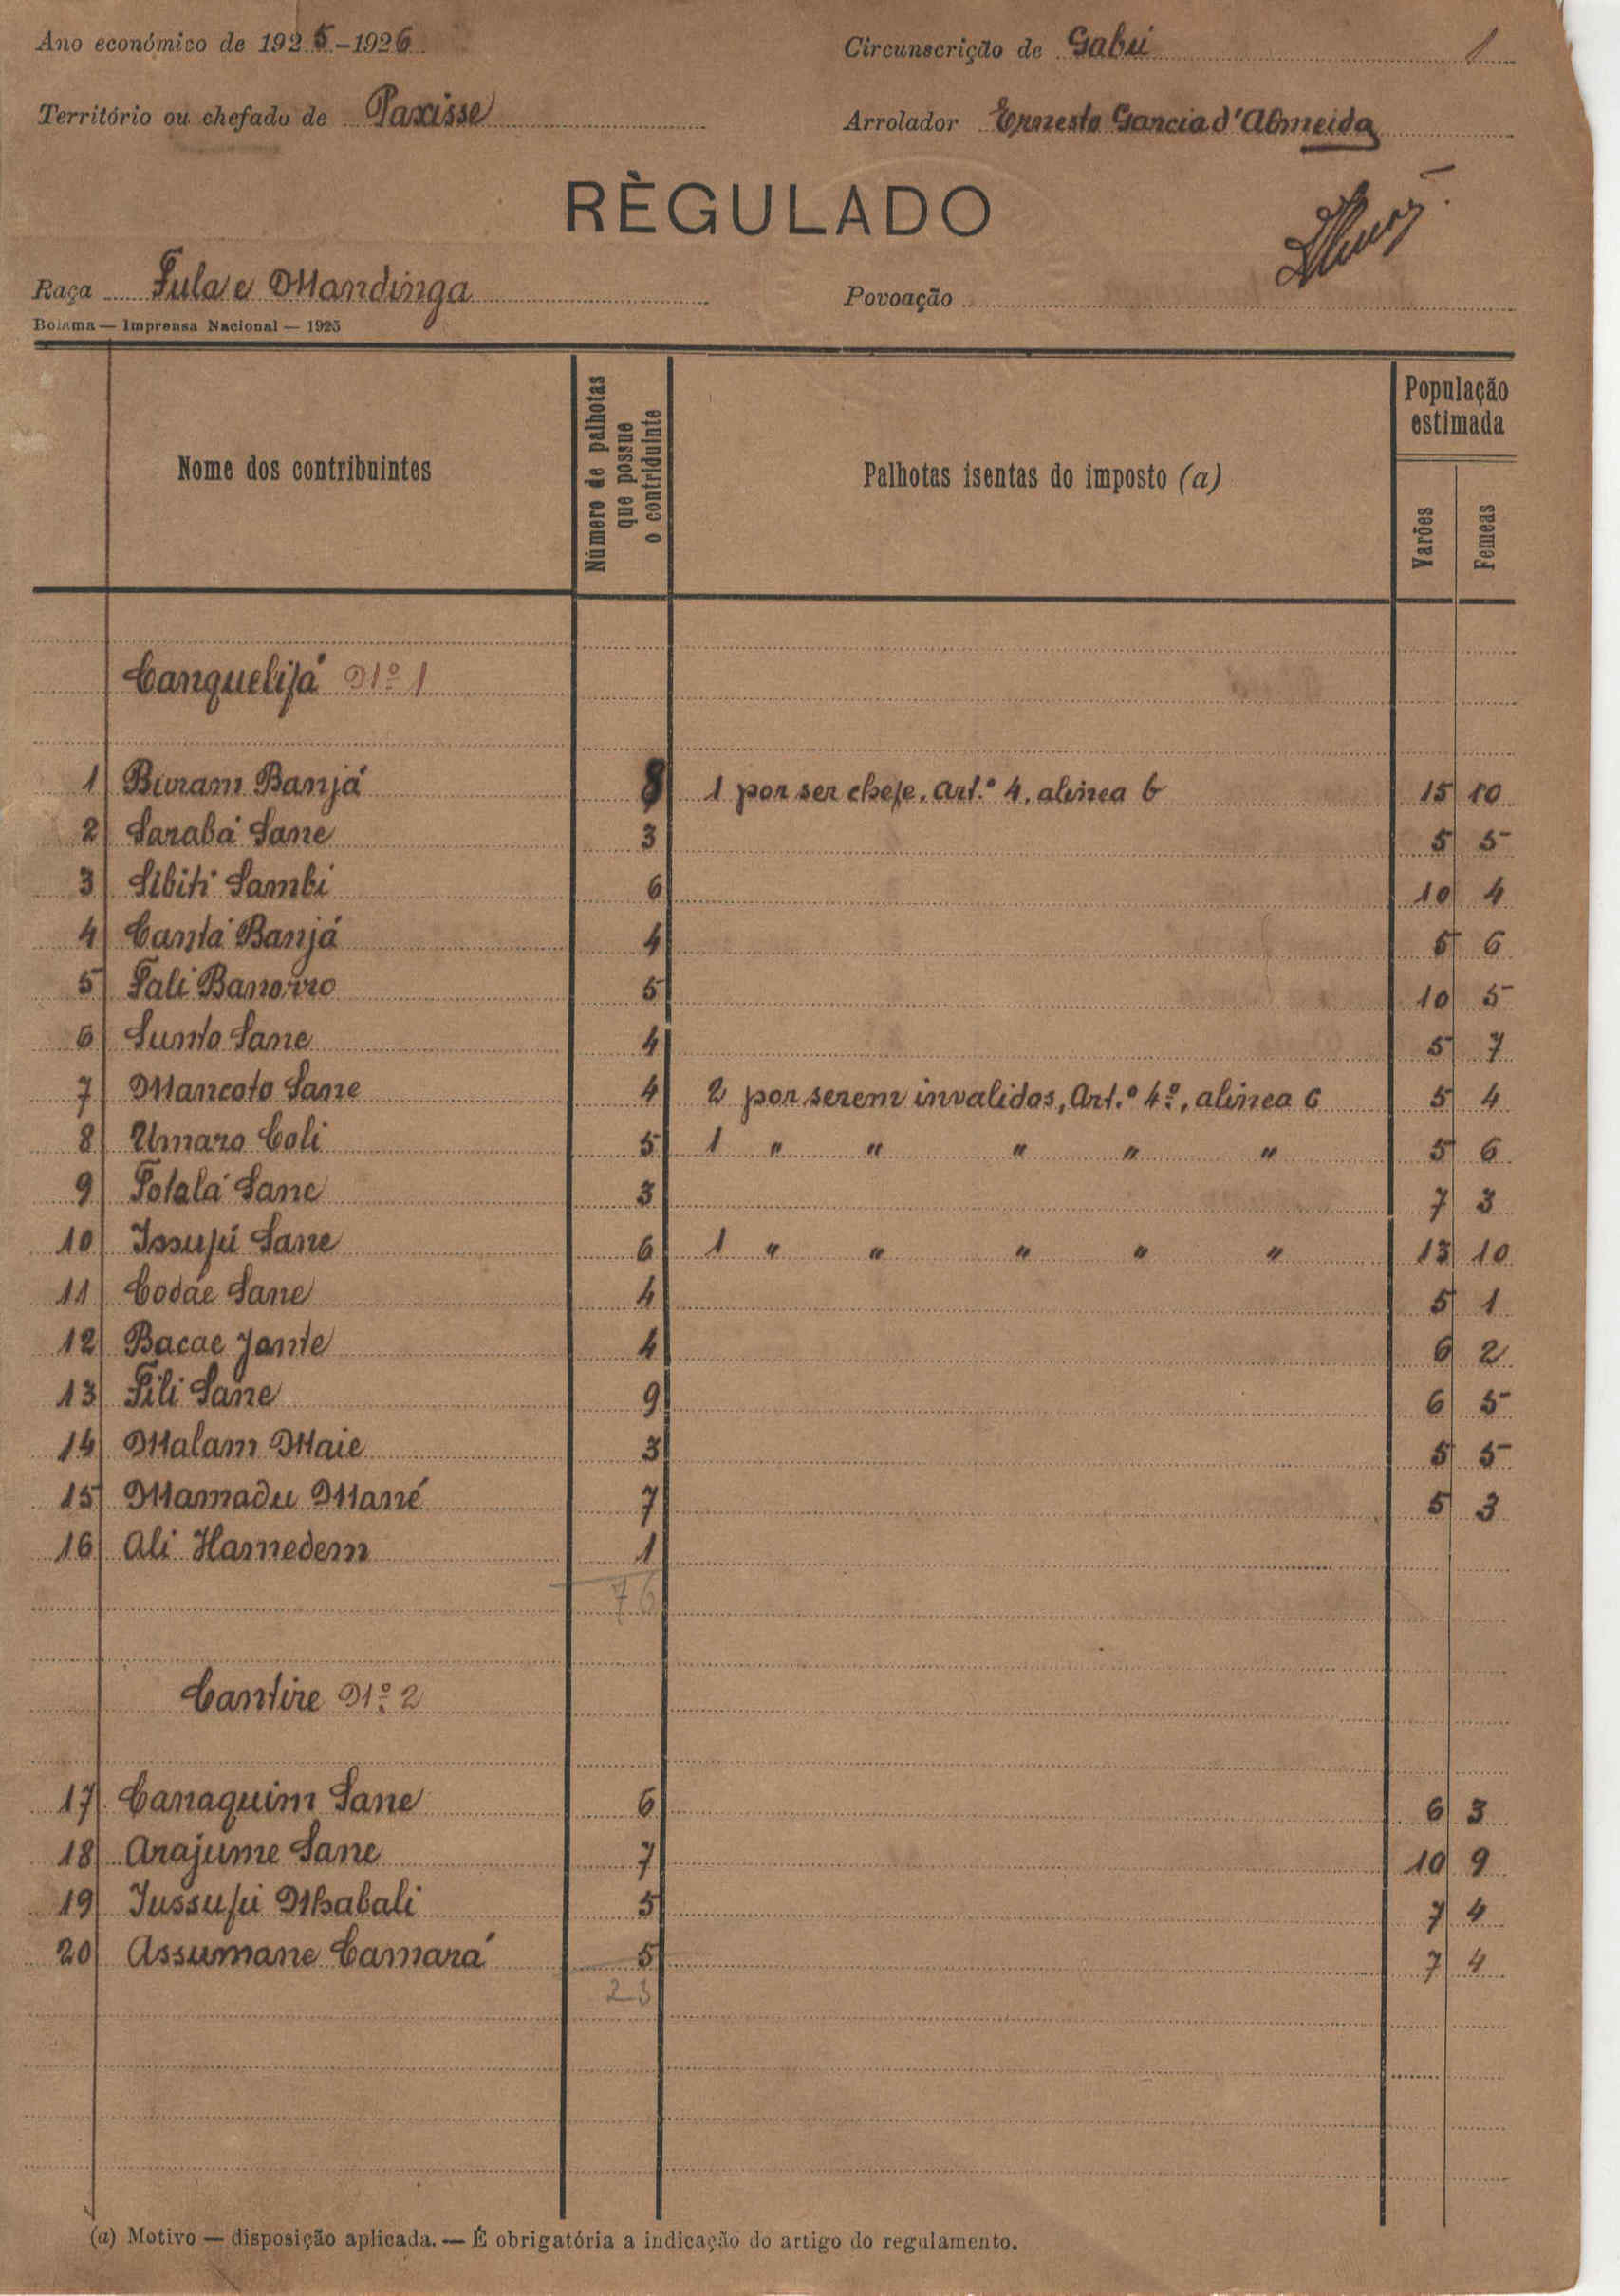 Ano económico de 1925-1926
Circunscrição de Gabú 1
Território ou chefado de Paxisse
Arrolador Ernesto Garcia d'Almeida
RÈGULADO
Raça Fula e Mandinga
Povoação
Bolama — Imprensa Nacional — 1925
Nome dos contribuintes
Número de palhotas que possue o contriduinte
Palhotas isentas do imposto (a)
População estimada
Varões Femeas
Canquelifá Nº 1
1 Buram Banjá 8 1 por ser chefe. Art.º 4, alinea b 15 10
2 Sarabá Sane 3 5 5
3 Sibiti Sambi 6 10 4
4 Cantá Banjá 4 5 6
5 Fali 5 10 5
6 Sunto Sane 4 5 7
7 Mancoto Sane 4 2 por serem invalidos, Art.º 4º, alinea c 5 4
8 Umaro Coli 5 1 " " " " " 5 6
9 Fotalá Sane 3 7 3
10 Issufú Sane 6 1 " " " " " 13 10
11 Codáe Sane 4 5 1
12 Bacae Jante 4 6 2
13 Fili Sane 9 6 5
14 Malam Maie 3 5 5
15 Mamadu Mané 7 5 3
16 Ali Hamedem 1
76
Cantire Nº 2
17 Canaquim Sane 6 6 3
18 Arajume Sane 7 10 9
19 Jussufú Mbabali 5 7 4
20 Assumane Camará 5 7 4
23
(a) Motivo — disposição aplicada. — É obrigatória a indicação do artigo do regulamento.